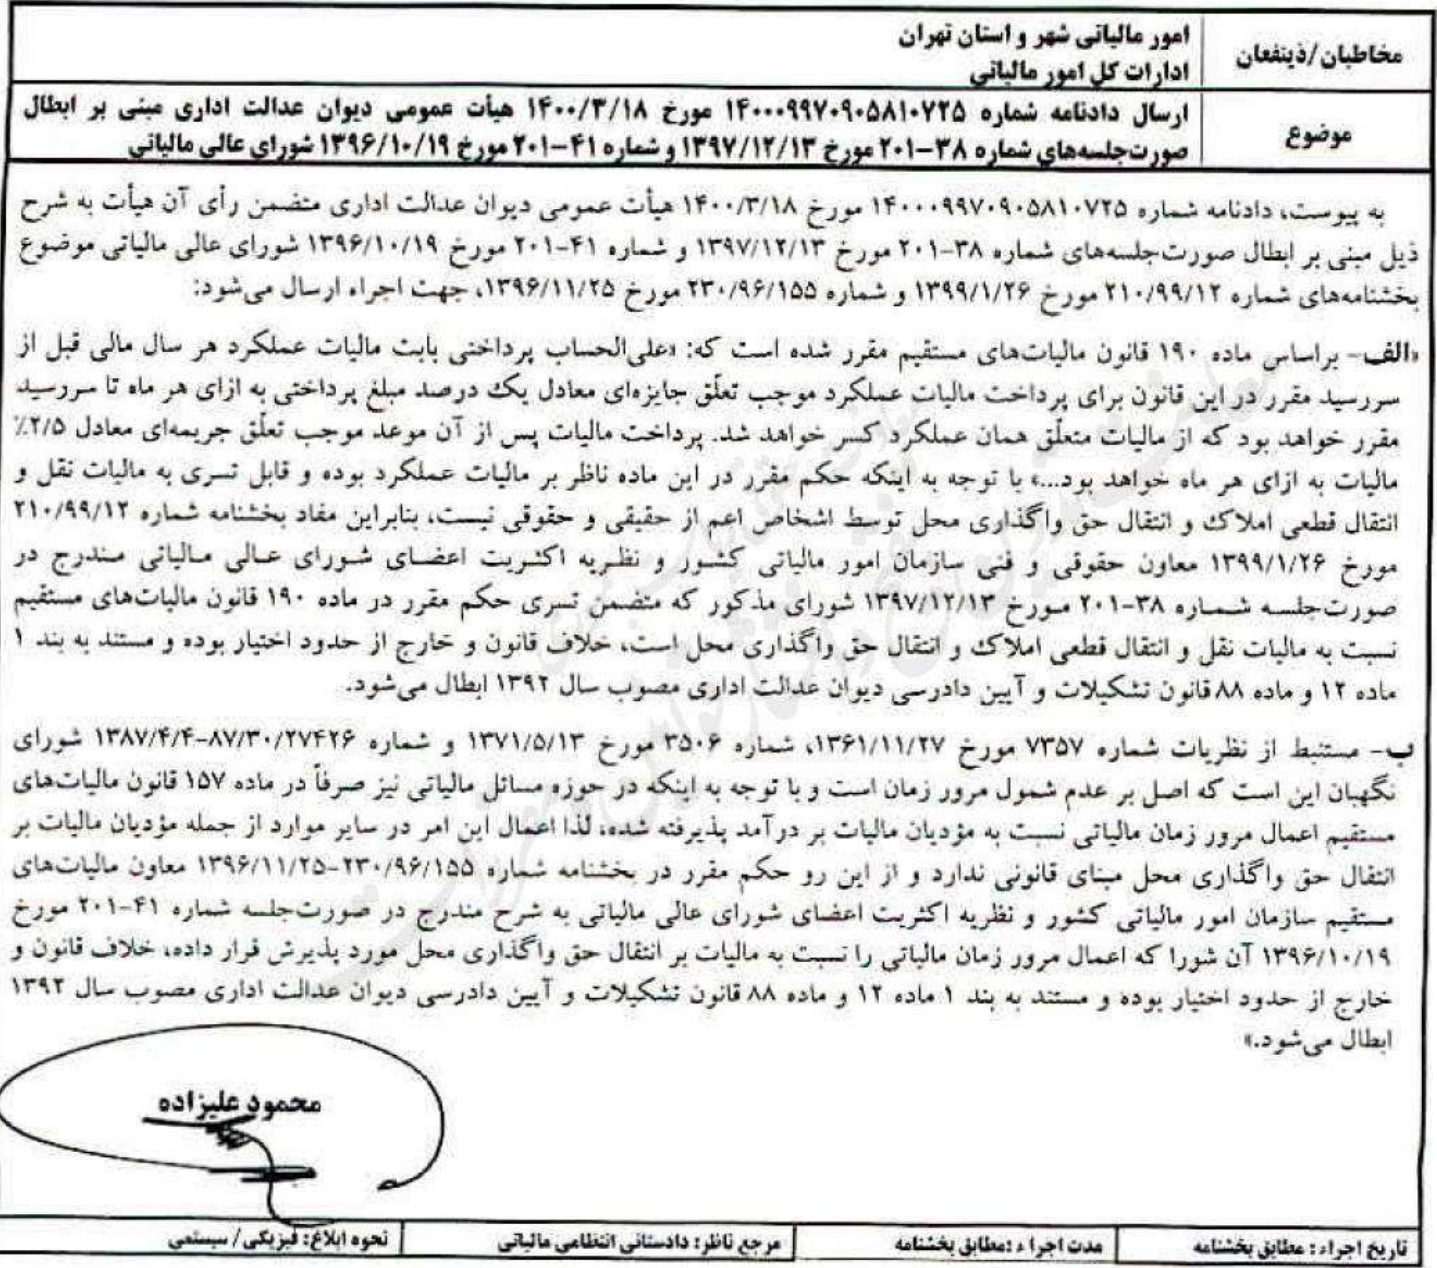 مخاطبان/ذینفعان
امور مالیاتی شهر و استان تهران
ادارات کل امور مالیاتی
موضوع
ارسال دادنامه شماره ۱۴۰۰۰۹۹۷۰۹۰۵۸۱۰۷۲۵ مورخ ۱۴۰۰/۳/۱۸ هیأت عمومی دیوان عدالت اداری مبنی بر ابطال
صورت‌جلسه‌های شماره ۳۸-۲۰۱ مورخ ۱۳۹۷/۱۲/۱۳ و شماره ۴۱-۲۰۱ مورخ ۱۳۹۶/۱۰/۱۹ شورای عالی مالیاتی
به پیوست، دادنامه شماره ۱۴۰۰۰۹۹۷۰۹۰۵۸۱۰۷۲۵ مورخ ۱۴۰۰/۳/۱۸ هیأت عمومی دیوان عدالت اداری متضمن رأی آن هیأت به شرح
ذیل مبنی بر ابطال صورت‌جلسه‌های شماره ۳۸-۲۰۱ مورخ ۱۳۹۷/۱۲/۱۳ و شماره ۴۱-۲۰۱ مورخ ۱۳۹۶/۱۰/۱۹ شورای عالی مالیاتی موضوع
بخشنامه‌های شماره ۲۱۰/۹۹/۱۲ مورخ ۱۳۹۹/۱/۲۶ و شماره ۲۳۰/۹۶/۱۵۵ مورخ ۱۳۹۶/۱۱/۲۵، جهت اجراء ارسال می‌شود:
«الف- براساس ماده ۱۹۰ قانون مالیات‌های مستقیم مقرر شده است که: «علی‌الحساب پرداختی بابت مالیات عملکرد هر سال مالی قبل از
سررسید مقرر در این قانون برای پرداخت مالیات عملکرد موجب تعلّق جایزه‌ای معادل یک درصد مبلغ پرداختی به ازای هر ماه تا سررسید
مقرر خواهد بود که از مالیات متعلّق همان عملکرد کسر خواهد شد. پرداخت مالیات پس از آن موعد موجب تعلّق جریمه‌ای معادل ۲/۵٪
مالیات به ازای هر ماه خواهد بود...» با توجه به اینکه حکم مقرر در این ماده ناظر بر مالیات عملکرد بوده و قابل تسری به مالیات نقل و
انتقال قطعی املاک و انتقال حق واگذاری محل توسط اشخاص اعم از حقیقی و حقوقی نیست، بنابراین مفاد بخشنامه شماره ۲۱۰/۹۹/۱۲
مورخ ۱۳۹۹/۱/۲۶ معاون حقوقی و فنی سازمان امور مالیاتی کشور و نظریه اکثریت اعضای شورای عالی مالیاتی مندرج در
صورت‌جلسه شماره ۳۸-۲۰۱ مورخ ۱۳۹۷/۱۲/۱۳ شورای مذکور که متضمن تسری حکم مقرر در ماده ۱۹۰ قانون مالیات‌های مستقیم
نسبت به مالیات نقل و انتقال قطعی املاک و انتقال حق واگذاری محل است، خلاف قانون و خارج از حدود اختیار بوده و مستند به بند ۱
ماده ۱۲ و ماده ۸۸ قانون تشکیلات و آیین دادرسی دیوان عدالت اداری مصوب سال ۱۳۹۲ ابطال می‌شود.
ب- مستنبط از نظریات شماره ۷۳۵۷ مورخ ۱۳۶۱/۱۱/۲۷، شماره ۳۵۰۶ مورخ ۱۳۷۱/۵/۱۳ و شماره ۸۷/۳۰/۲۷۴۲۶-۱۳۸۷/۴/۴ شورای
نگهبان این است که اصل بر عدم شمول مرور زمان است و با توجه به اینکه در حوزه مسائل مالیاتی نیز صرفاً در ماده ۱۵۷ قانون مالیات‌های
مستقیم اعمال مرور زمان مالیاتی نسبت به مؤدیان مالیات بر درآمد پذیرفته شده، لذا اعمال این امر در سایر موارد از جمله مؤدیان مالیات بر
انتقال حق واگذاری محل مبنای قانونی ندارد و از این رو حکم مقرر در بخشنامه شماره ۲۳۰/۹۶/۱۵۵-۱۳۹۶/۱۱/۲۵ معاون مالیات‌های
مستقیم سازمان امور مالیاتی کشور و نظریه اکثریت اعضای شورای عالی مالیاتی به شرح مندرج در صورت‌جلسه شماره ۴۱-۲۰۱ مورخ
۱۳۹۶/۱۰/۱۹ آن شورا که اعمال مرور زمان مالیاتی را نسبت به مالیات بر انتقال حق واگذاری محل مورد پذیرش قرار داده، خلاف قانون و
خارج از حدود اختیار بوده و مستند به بند ۱ ماده ۱۲ و ماده ۸۸ قانون تشکیلات و آیین دادرسی دیوان عدالت اداری مصوب سال ۱۳۹۲
ابطال می‌شود.»
محمود علیزاده
تاریخ اجراء: مطابق بخشنامه
مدت اجراء: مطابق بخشنامه
مرجع ناظر: دادستانی انتظامی مالیاتی
نحوه ابلاغ: فیزیکی/ سیستمی